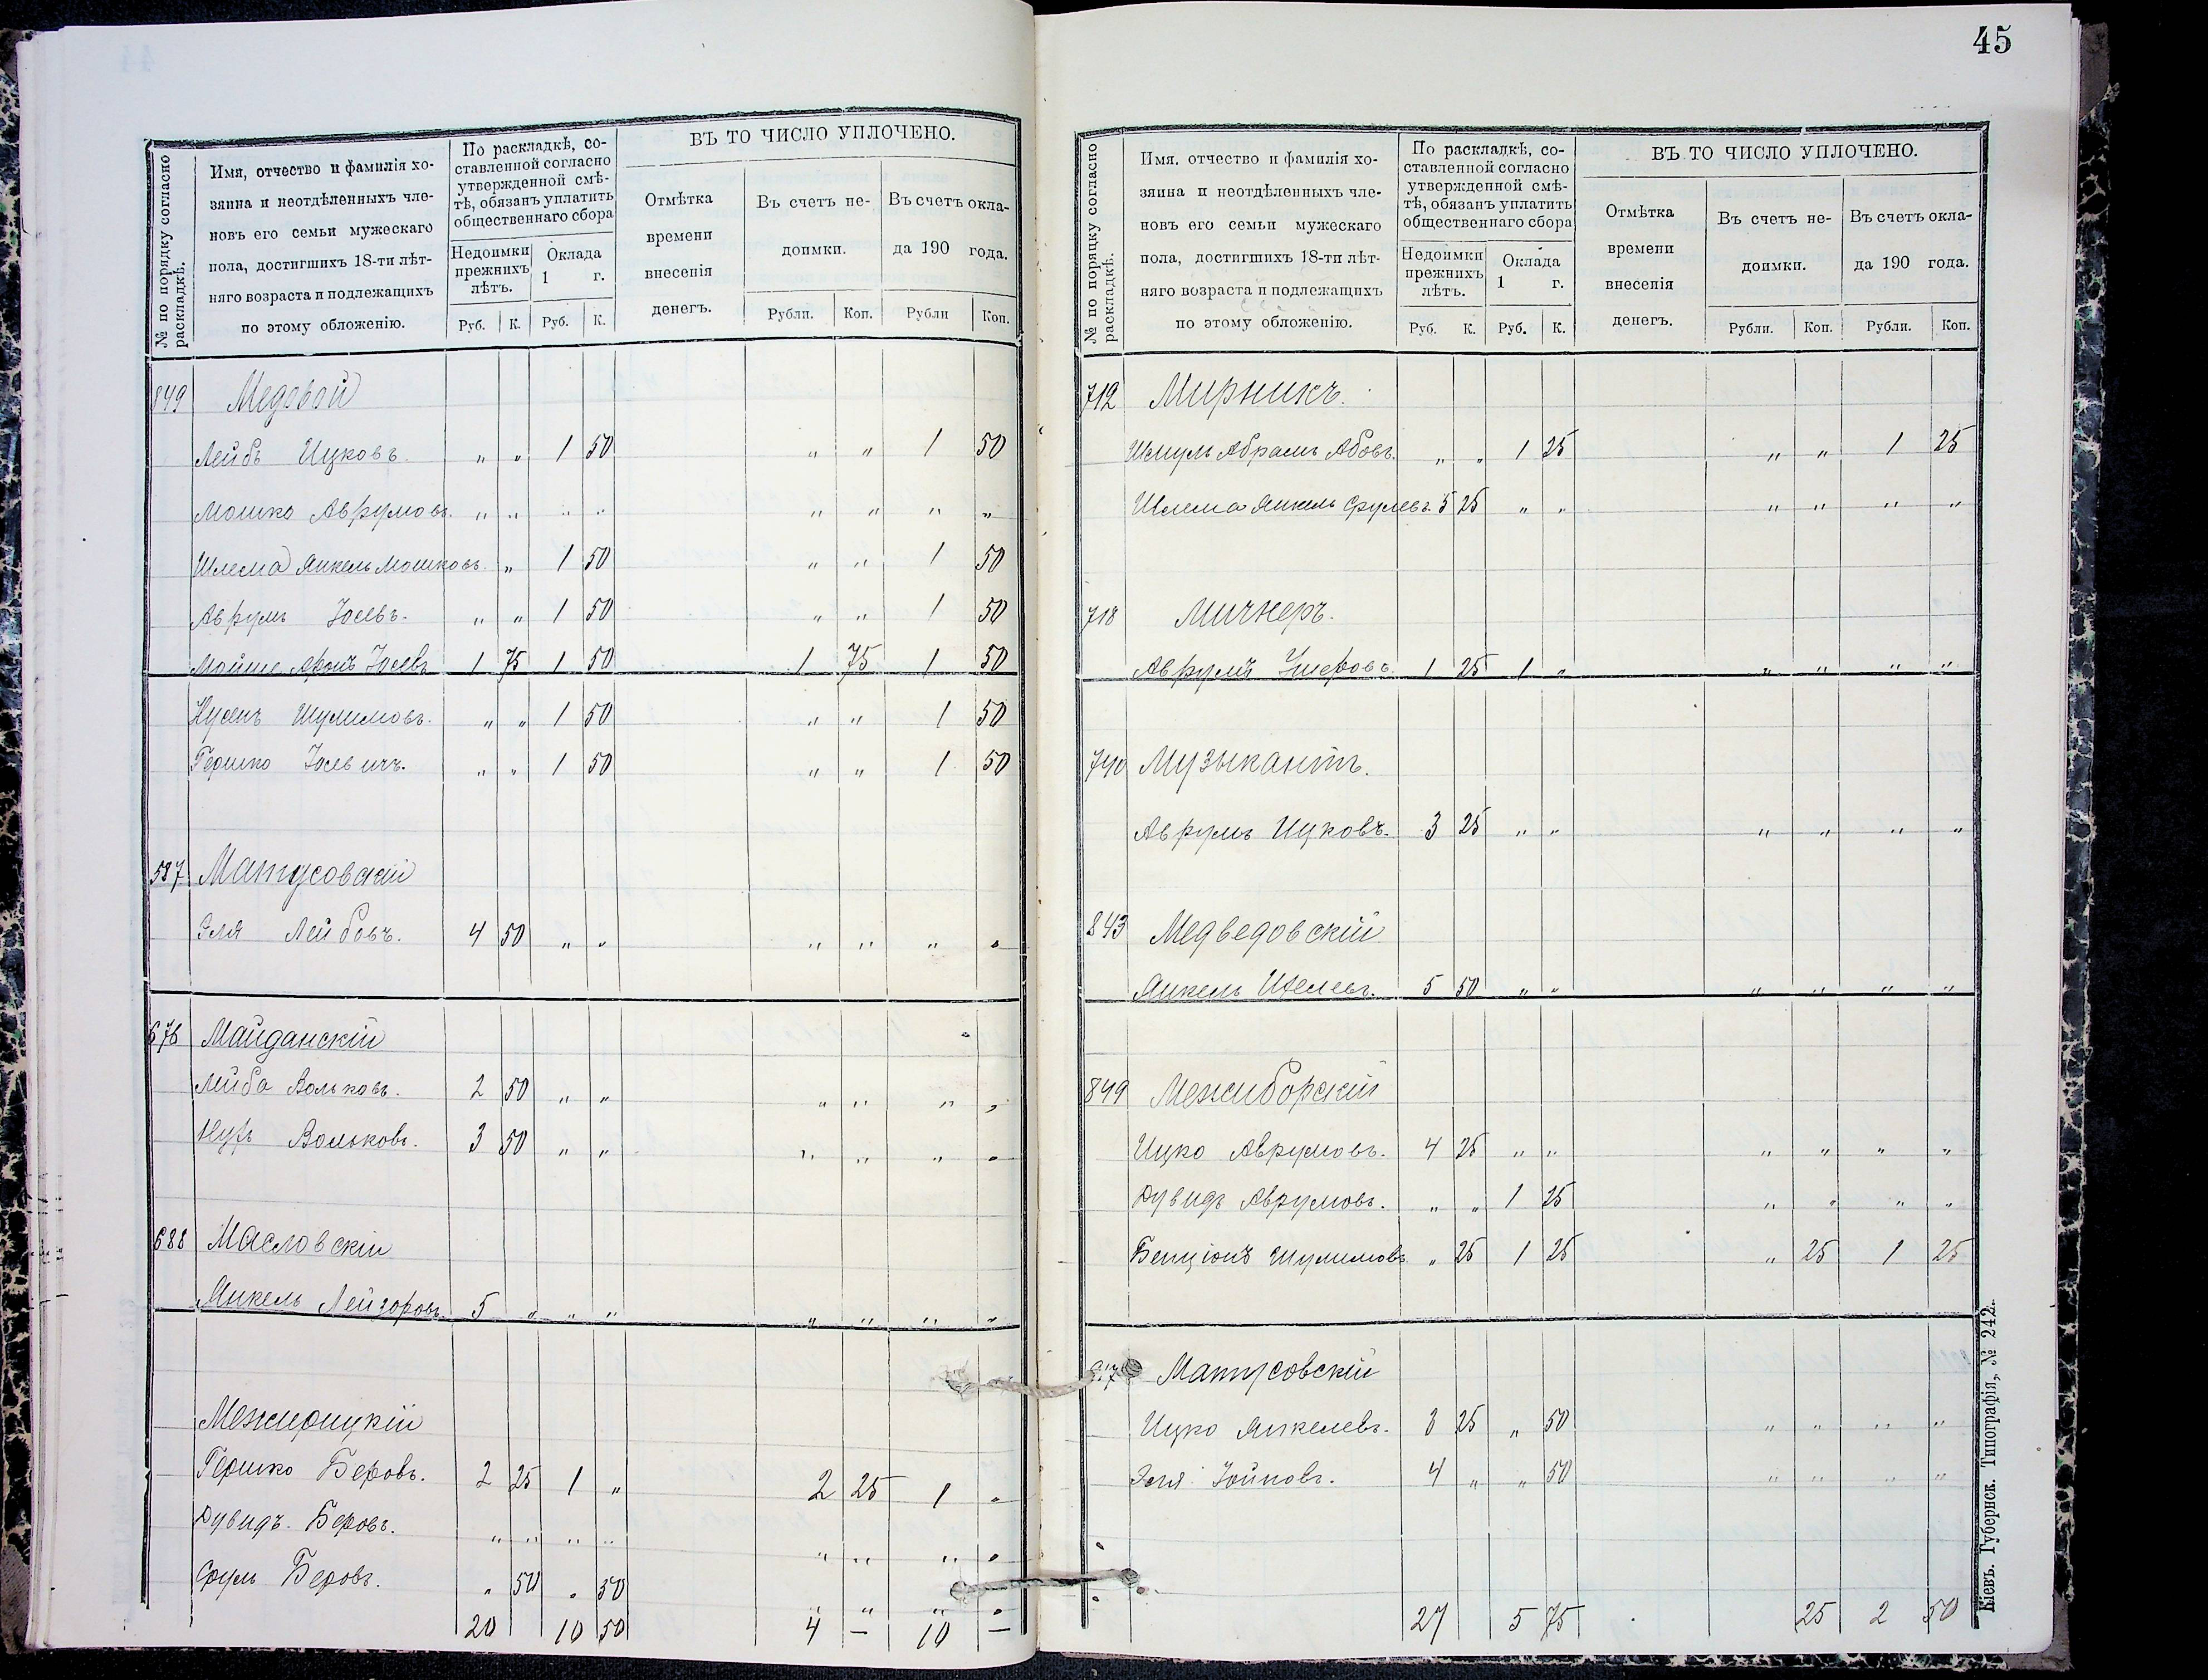 № по порядку согласно раскладкѣ.
Имя, отчество и фамилія хо-
зяина и неотдѣленныхъ чле-
новъ его семьи мужескаго
пола, достигшихъ 18-ти лѣт-
няго возраста и подлежащихъ
по этому обложенію.
По раскладкѣ, со-
ставленной согласно
утвержденной смѣ-
тѣ, обязанъ уплатить
общественнаго сбора
Недоимки прежнихъ лѣтъ.
Оклада 1 г.
Руб. К. Руб. К.
ВЪ ТО ЧИСЛО УПЛОЧЕНО.
Отмѣтка
времени
внесенія
денегъ.
Въ счетъ не-
доимки.
Въ счетъ окла-
да 190 года.
Рубли. Коп. Рубли Коп.
849 Медовой
Лейбъ Ицковъ. " " 1 50 " " 1 50
Мошко Аврумовъ. " " " " " " " "
Шлема Янкель Мошковъ. " 1 50 " " 1 50
Аврумъ Іосевъ. " " 1 50 " " 1 50
Мойше Аронъ Іосевъ 1 75 1 50 1 75 1 50
Нусенъ Шулимовъ. " " 1 50 " " 1 50
Гершко Іосевичъ. " " 1 50 " " 1 50
597 Матусовскій
Эля Лейбовъ. 4 50 " " " " " "
676 Майданскій
Лейба Вольковъ. 2 50 " " " " " "
Вольковъ. 3 50 " " " " " "
688 Масловскій
Янкель Лейзоровъ. 5 " " " " " " "
Межирицкій
Гершко Беровъ. 2 25 1 " 2 25 1 "
Дувидъ Беровъ. " " " " " " " "
Сруль Беровъ. " 50 " 50 " " " "
20 10 50 4 — 10 —
45
№ по порядку согласно раскладкѣ.
Имя, отчество и фамилія хо-
зяина и неотдѣленныхъ чле-
новъ его семьи мужескаго
пола, достигшихъ 18-ти лѣт-
няго возраста и подлежащихъ
по этому обложенію.
По раскладкѣ, со-
ставленной согласно
утвержденной смѣ-
тѣ, обязанъ уплатить
общественнаго сбора
Недоимки прежнихъ лѣтъ.
Оклада 1 г.
Руб. К. Руб. К.
ВЪ ТО ЧИСЛО УПЛОЧЕНО.
Отмѣтка
времени
внесенія
денегъ.
Въ счетъ не-
доимки.
Въ счетъ окла-
да 190 года.
Рубли. Коп. Рубли. Коп.
712 Мирникъ.
Шмуль Абрамъ Абовъ. " " 1 25 " " 1 25
Шлема Янкель Срулевъ. 5 25 " " " " " "
718 Мичнеръ.
Аврумъ Ушеровъ. 1 25 1 " " " " "
740 Музыкантъ.
Аврумъ Ицковъ. 3 25 " " " " " "
843 Медведовскій
Янкель 5 50 " " " " " "
849 Межиборскій
Ицко Аврумовъ. 4 25 " " " " " "
Дувидъ Аврумовъ. " " 1 25 " " " "
Бенціонъ Шулимовъ " 25 1 25 " 25 1 25
Матусовскій
Ицко Янкелевъ. 3 25 " 50 " " " "
Эля 4 " " 50 " " " "
27 5 75 25 2 50
Кіевъ. Губернск. Типографія, № 242.